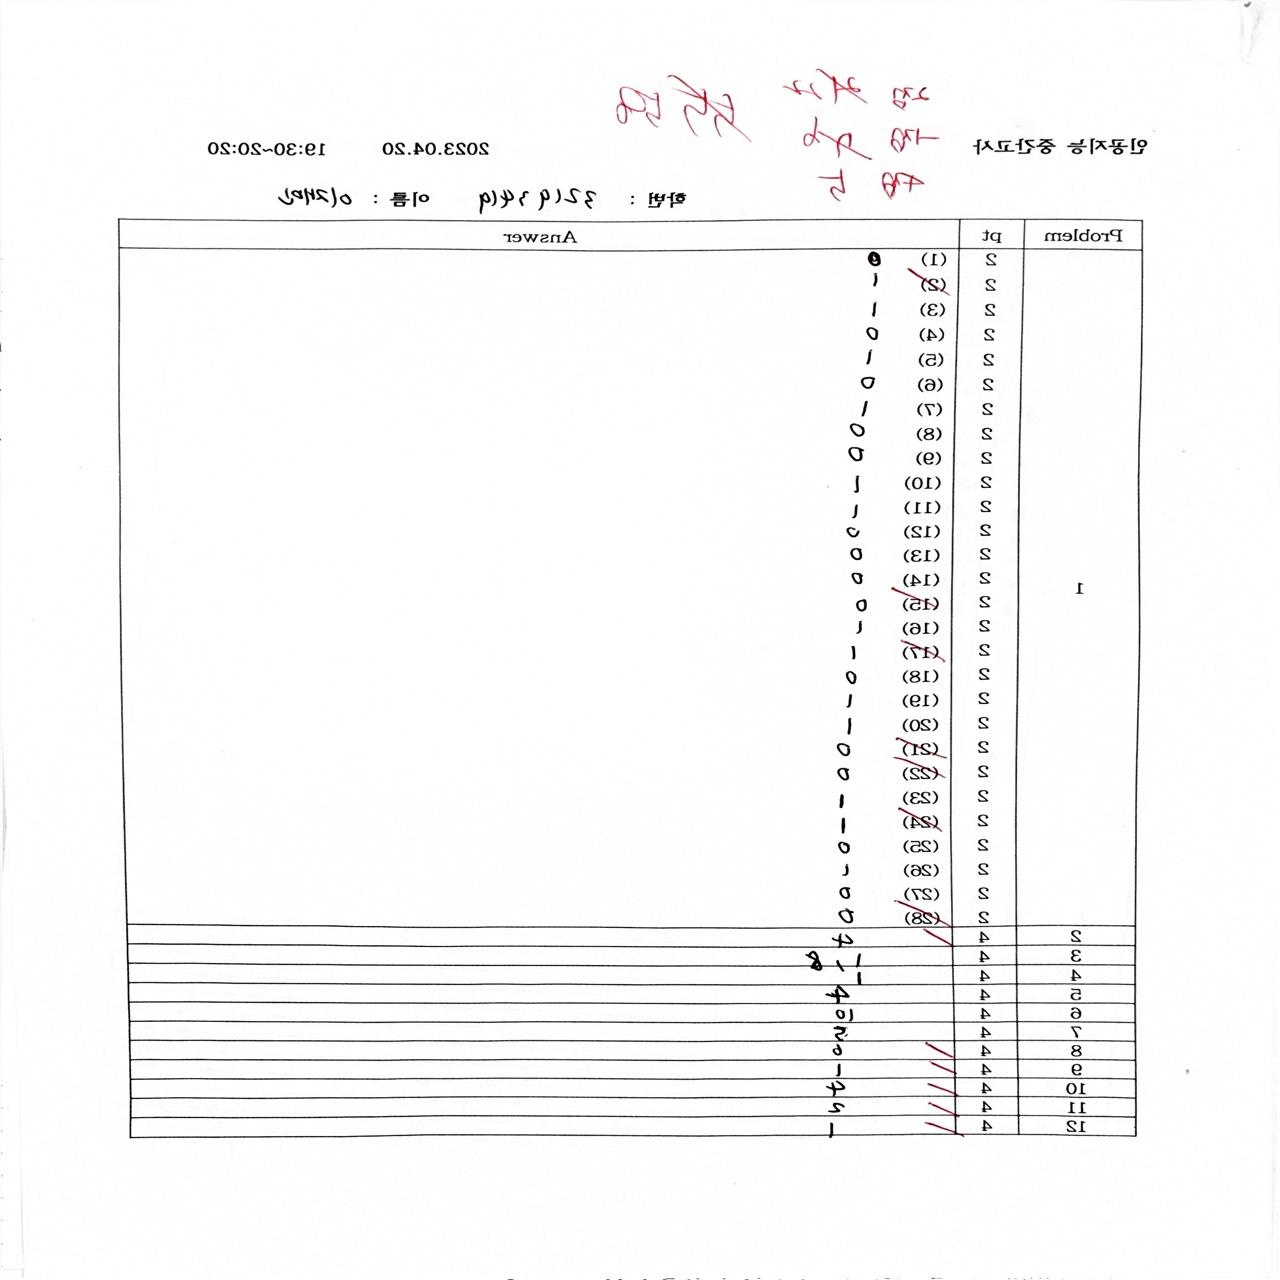 2점
1점
4점 5
인공지능 중간고사 2023.04.20 19:30~20:20
학번 : 32193419 이름 : 이재민
Problem pt Answer
2 (1)
2 (2) 1
2 (3) 1
2 (4) 0
2 (5) 1
2 (6) 0
2 (7) 1
2 (8) 0
2 (9) 0
2 (10) 1
2 (11) 1
2 (12) 0
2 (13) 0
1 2 (14) 0
2 (15) 0
2 (16) 1
2 (17) 1
2 (18) 0
2 (19) 1
2 (20) 1
2 (21) 0
2 (22) 0
2 (23) 1
2 (24) 1
2 (25) 0
2 (26) 1
2 (27) 0
2 (28) 0
2 4
3 4
4 4
5 4 4
6 4
7 4
8 4 0
9 4 1
10 4
11 4
12 4 1